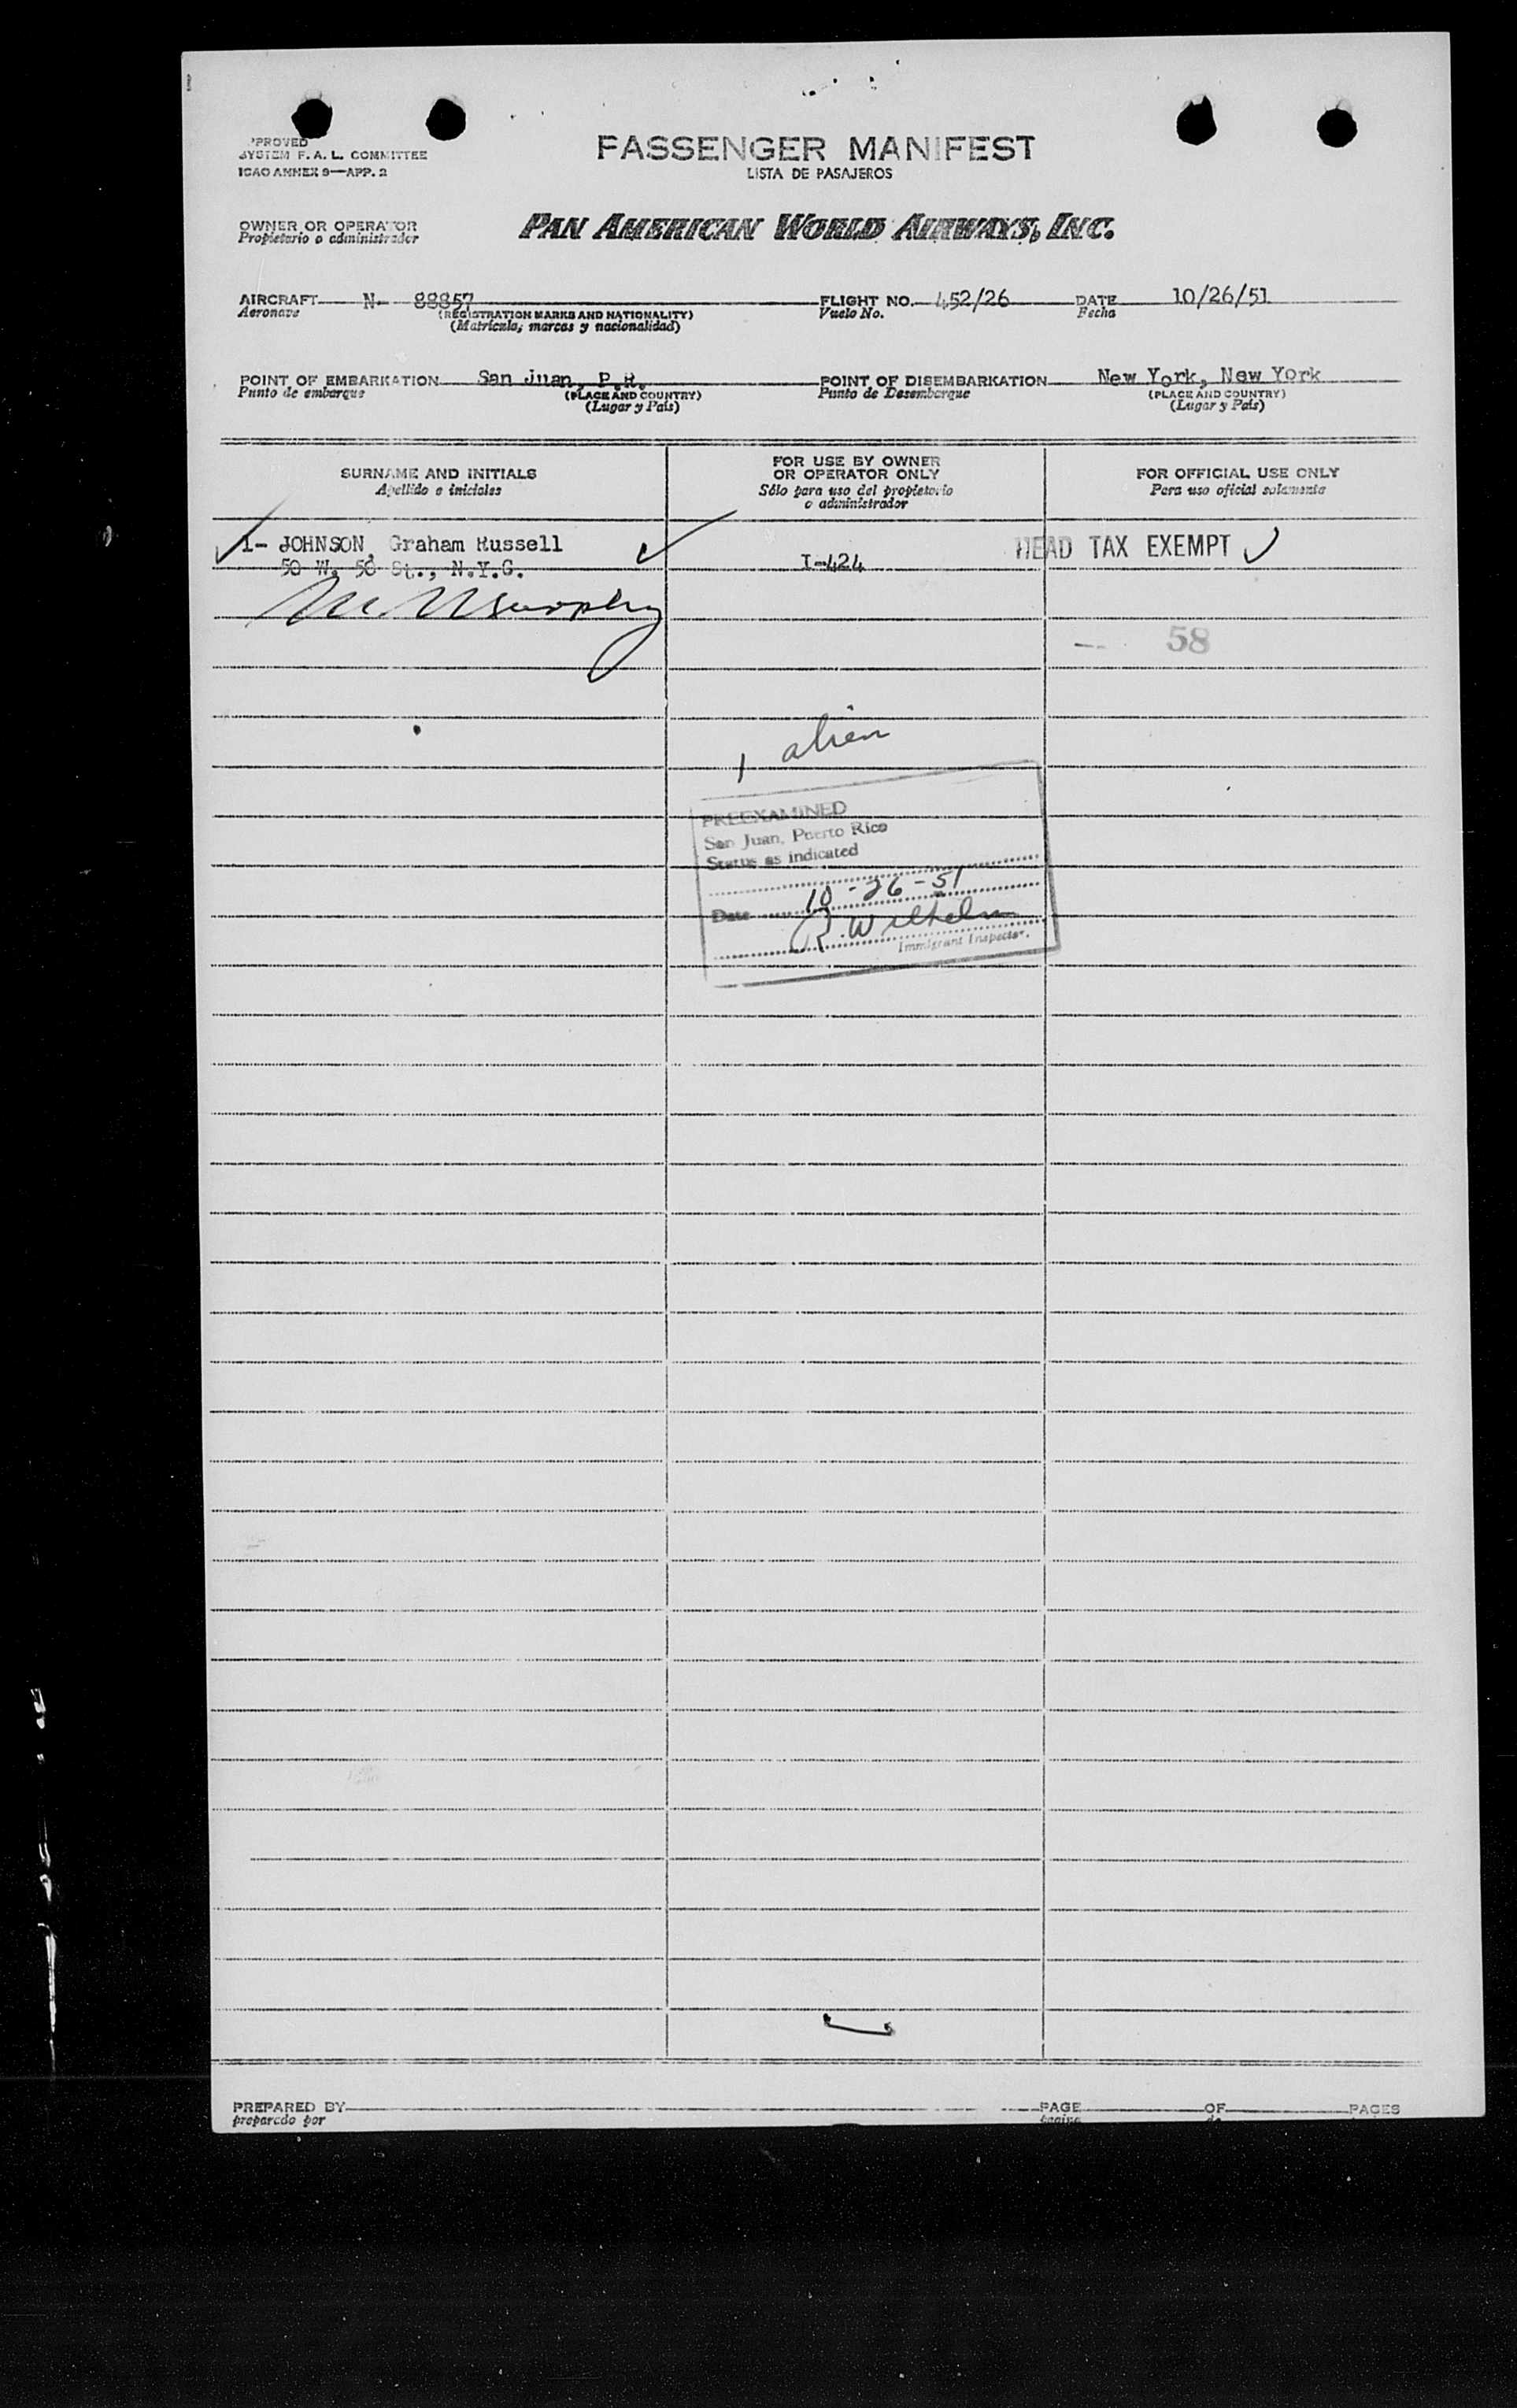 PPROVED
SYSTEM F. A. L. COMMITTEE
ICAO ANNEX 9—APP. 2
PASSENGER MANIFEST
LISTA DE PASAJEROS
OWNER OR OPERATOR
Propietario o administrador
PAN AMERICAN WORLD AIRWAYS, INC.
AIRCRAFT N- 88857
Aeronave
(REGISTRATION MARKS AND NATIONALITY)
(Matrícula, marcas y nacionalidad)
FLIGHT NO. 452/26
Vuelo No.
DATE 10/26/51
Fecha
POINT OF EMBARKATION San Juan, P.R.
Punto de embarque
(PLACE AND COUNTRY)
(Lugar y País)
POINT OF DISEMBARKATION New York, New York
Punto de Desembarque
(PLACE AND COUNTRY)
(Lugar y País)
SURNAME AND INITIALS
Apellido e iniciales
FOR USE BY OWNER
OR OPERATOR ONLY
Sólo para uso del propietario
o administrador
FOR OFFICIAL USE ONLY
Para uso oficial solamente
1- JOHNSON, Graham Russell
50 W. 50 St., N.Y.C.
I-424
HEAD TAX EXEMPT
Murphy
58
1 alien
PREEXAMINED
San Juan, Puerto Rico
Status as indicated
Date 10-26-51
R. Wilhelm
Immigrant Inspector.
PREPARED BY
preparado por
PAGE
OF
PAGES